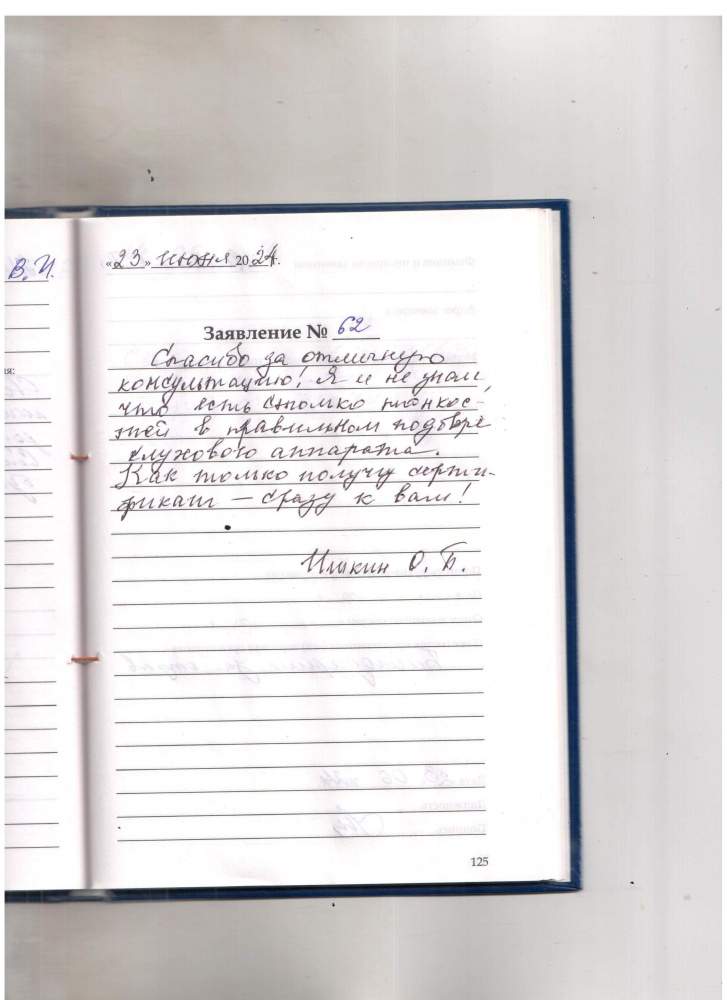 В. И.
«23» июня 2024г.
Заявление № 62
Спасибо за отличную
консультацию! Я и не знал,
что есть столько тонкос-
тей в правильном подборе
слухового аппарата.
Как только получу серти-
фикат – сразу к вам!
О. Б.
125